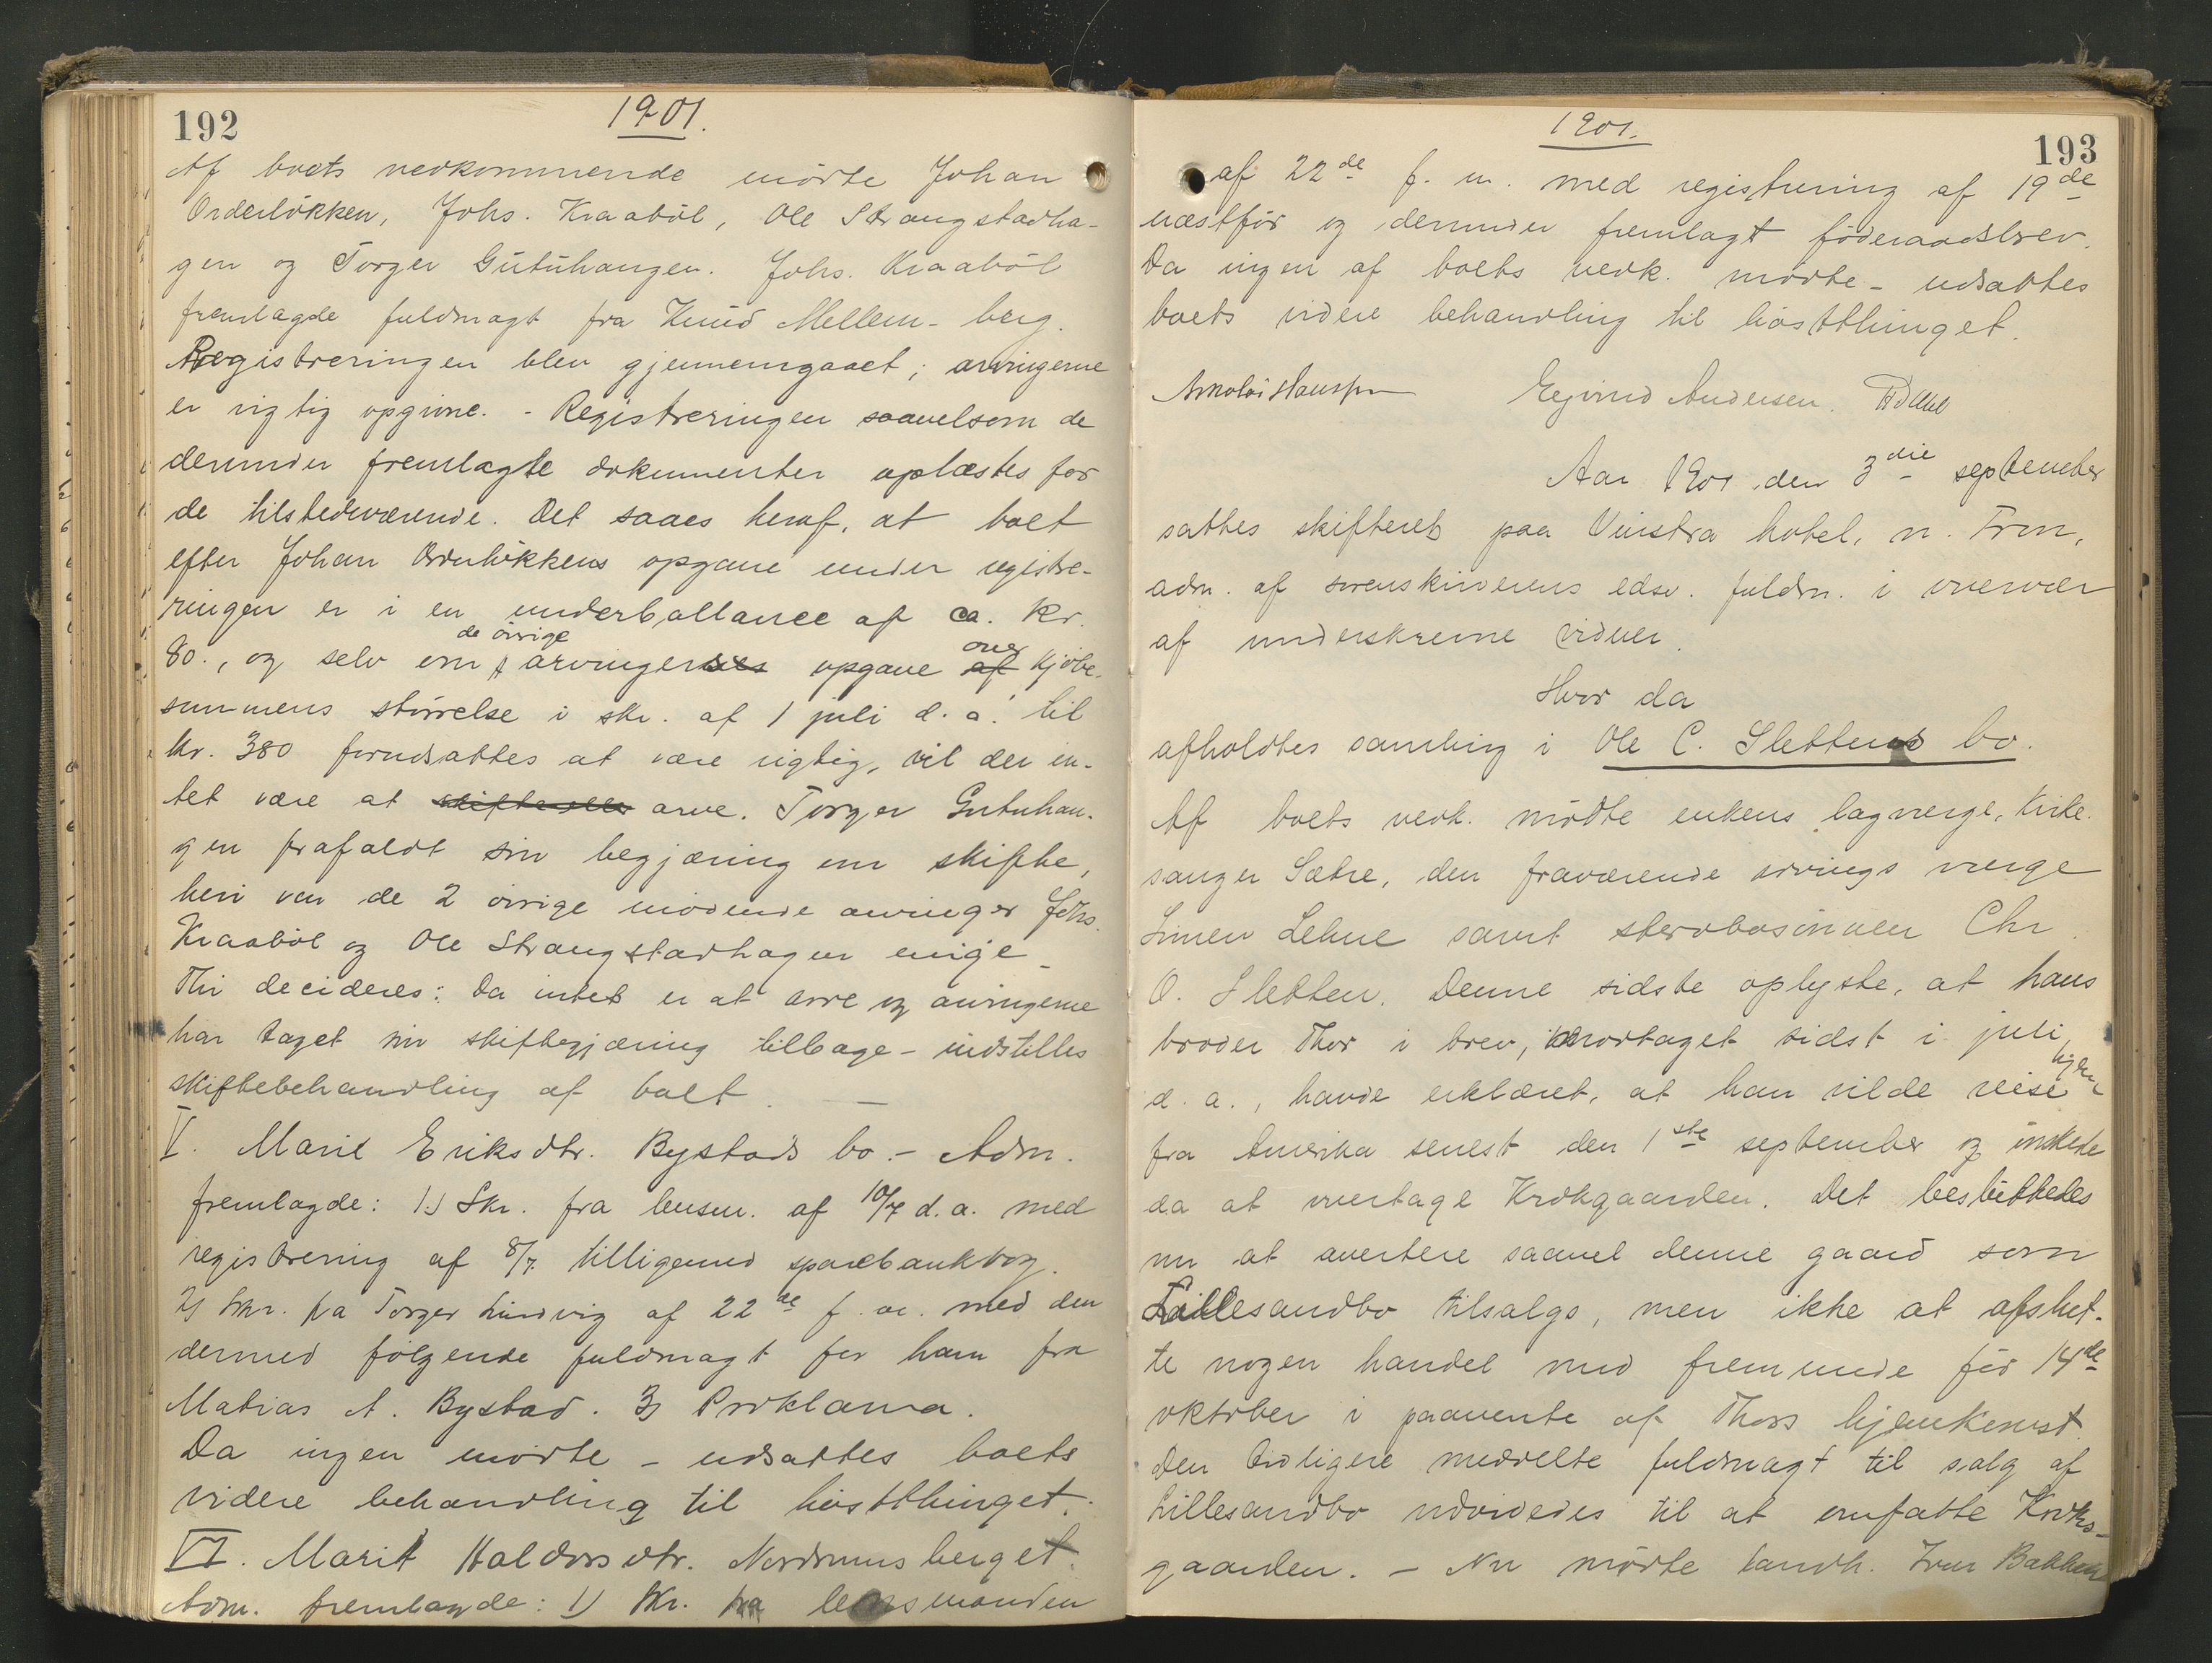 192
1901.
Af boets vedkommende mödte Johan
Orderlökken, Johs. Kraaböl, Ole Strangstadha-
gen og Torger Gutuhaugen. Johs. Kraaböl
fremlagde fuldmagt fra Knud Mellem-berg.
Registreringen blev gjennemgaaet; arvingerne
er rigtig opgivne. - Registreringen saavelsom de
derunder fremlagte dokumenter oplæstes for
de tilstedeværende. Det saaes heraf, at boet
efter Johan Orderlökkens opgave under registre-
ringen er i en underballance af ca. kr.
80., og selv om de övrige arvingers opgave over kjöbe-
summens störrelse i skr. af 1 juli d. a. til
kr. 380 forudsattes at være rigtig, vil der in-
tet være at arve. Torger Gutuhau-
gen frafaldt sin begjæring om skifte,
heri var de 2 övrige mödende arvinger Johs.
Kraaböl og Ole Strangstadhagen enige.
Thi decideres: Da intet er at arve og arvingerne
har taget sin skiftebegjæring tilbage - indstilles
skiftebehandling af boet. —
V. Marit Eriksdtr. Bystads bo. - Adm.
fremlagde: 1) Skr. fra lensm. af 10/7 d. a. med
registrering af 8/7 tilligemed sparebankbog.
2) Skr. fra Torger Lindvig af 22de f. m. med den
dermed fölgende fuldmagt for ham fra
Matias A. Bystad. 3) Proklama.
Da ingen mödte - udsattes boets
videre behandling til höstthinget.
VI. Marit Haldorsdtr. Nordrumsberget.
Adm. fremlagde: 1) Skr. fra lensmanden
1901.
193
af 22de f. m. med registrering af 19de
næstför og derunder fremlagt föderaadsbrev.
Da ingen af boets vedk. mödte - udsattes
boets videre behandling til höstthinget.
Eyvind Andersen.
Aar 1901 den 3die september
sattes skifteret paa Vinstra hotel, n. Fron,
adm. af sorenskriverens edsv. fuldm. i overvær
af underskrevne vidner.
Hvor da
afholdtes samling i Ole C. Slettens bo.
Af boets vedk. mödte enkens lagverge, kirke-
sanger Sætre, den fraværende arvings verge
Simen Lehne samt sterbosönnen Chr.
O. Sletten. Denne sidste oplyste, at hans
broder Thor i brev, modtaget sidst i juli
d. a., havde erklæret, at han vilde reise hjem
fra Amerika senest den 1ste september og önskede
da at overtage Krokgaarden. Det besluttedes
nu at avertere saavel denne gaard som
Lillesandbo tilsalgs, men ikke at afslut-
te nogen handel med fremmede för 14de
oktober i paavente af Thors hjemkomst.
Den tidligere meddelte fuldmagt til salg af
Lillesandbo udvidedes til at omfatte Kroks-
gaarden. - Nu mödte landh. Iver Bakken